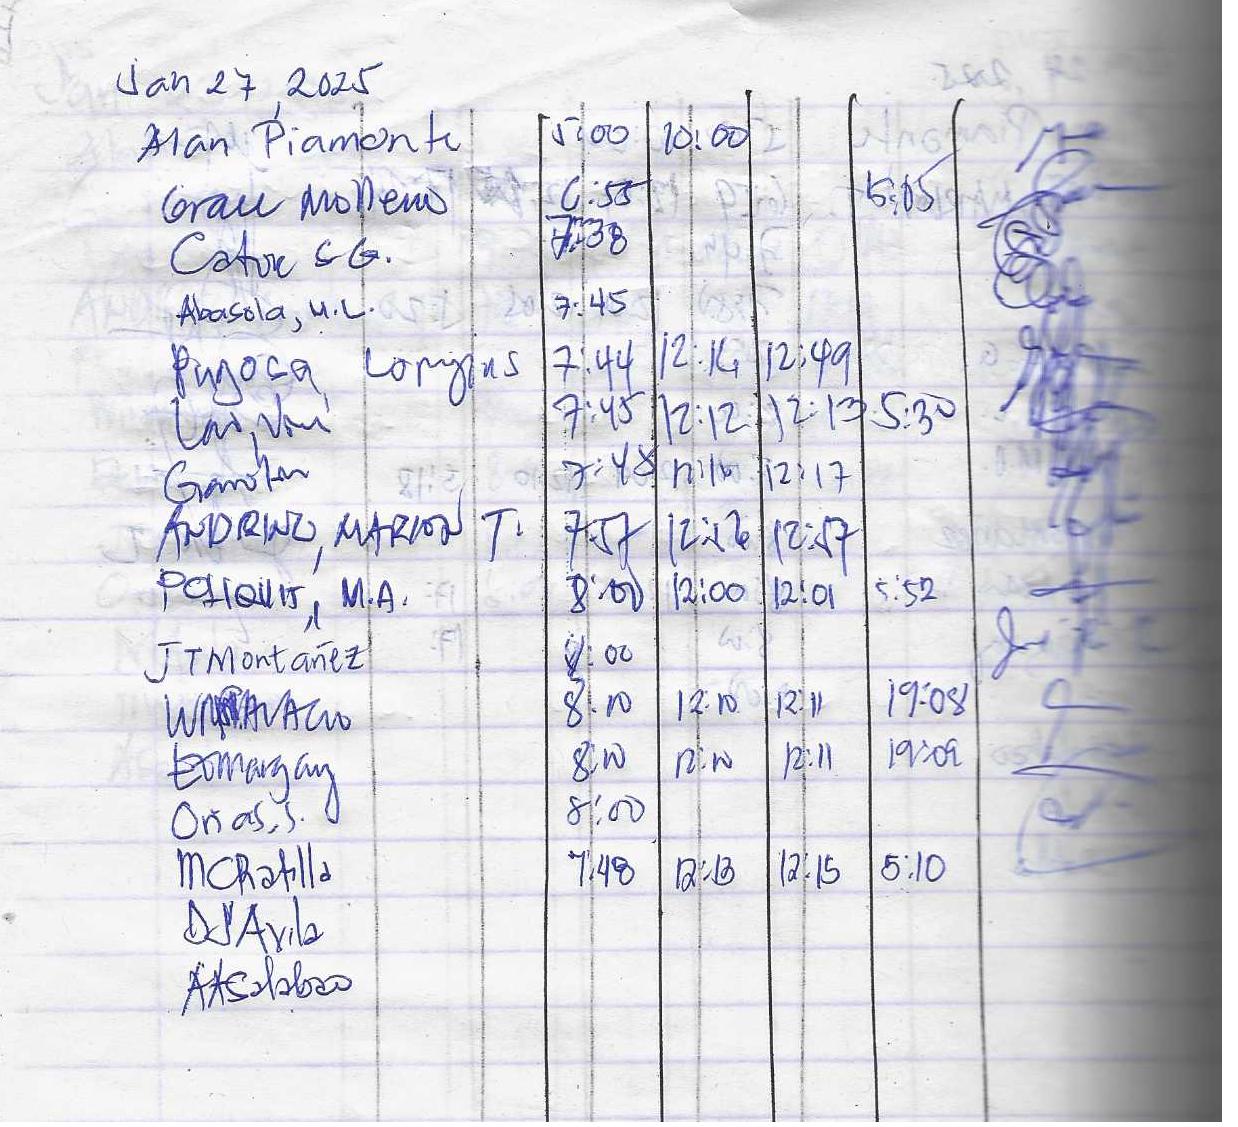 Jan 27, 2025
Alan Piamonte 5:00 10:00
Grace Molleno 6:55 5:05
Cator SG. 7:38
Abasola, M.L. 7:45
Pugosa, 7:44 12:14 12:49
7:45 12:12 12:13 5:30
7:48 12:16 12:17
ANDRINO, MARION T. 7:57 12:56 12:57
M.A. 8:00 12:00 12:01 5:52
JTMontañez 8:00
8:10 12:10 12:11 19:08
Lomargay 8:10 12:10 12:11 19:09
Oñas, S. 8:00
MCRafilla 7:48 12:13 12:15 5:10
DJ Avila
AASalabao